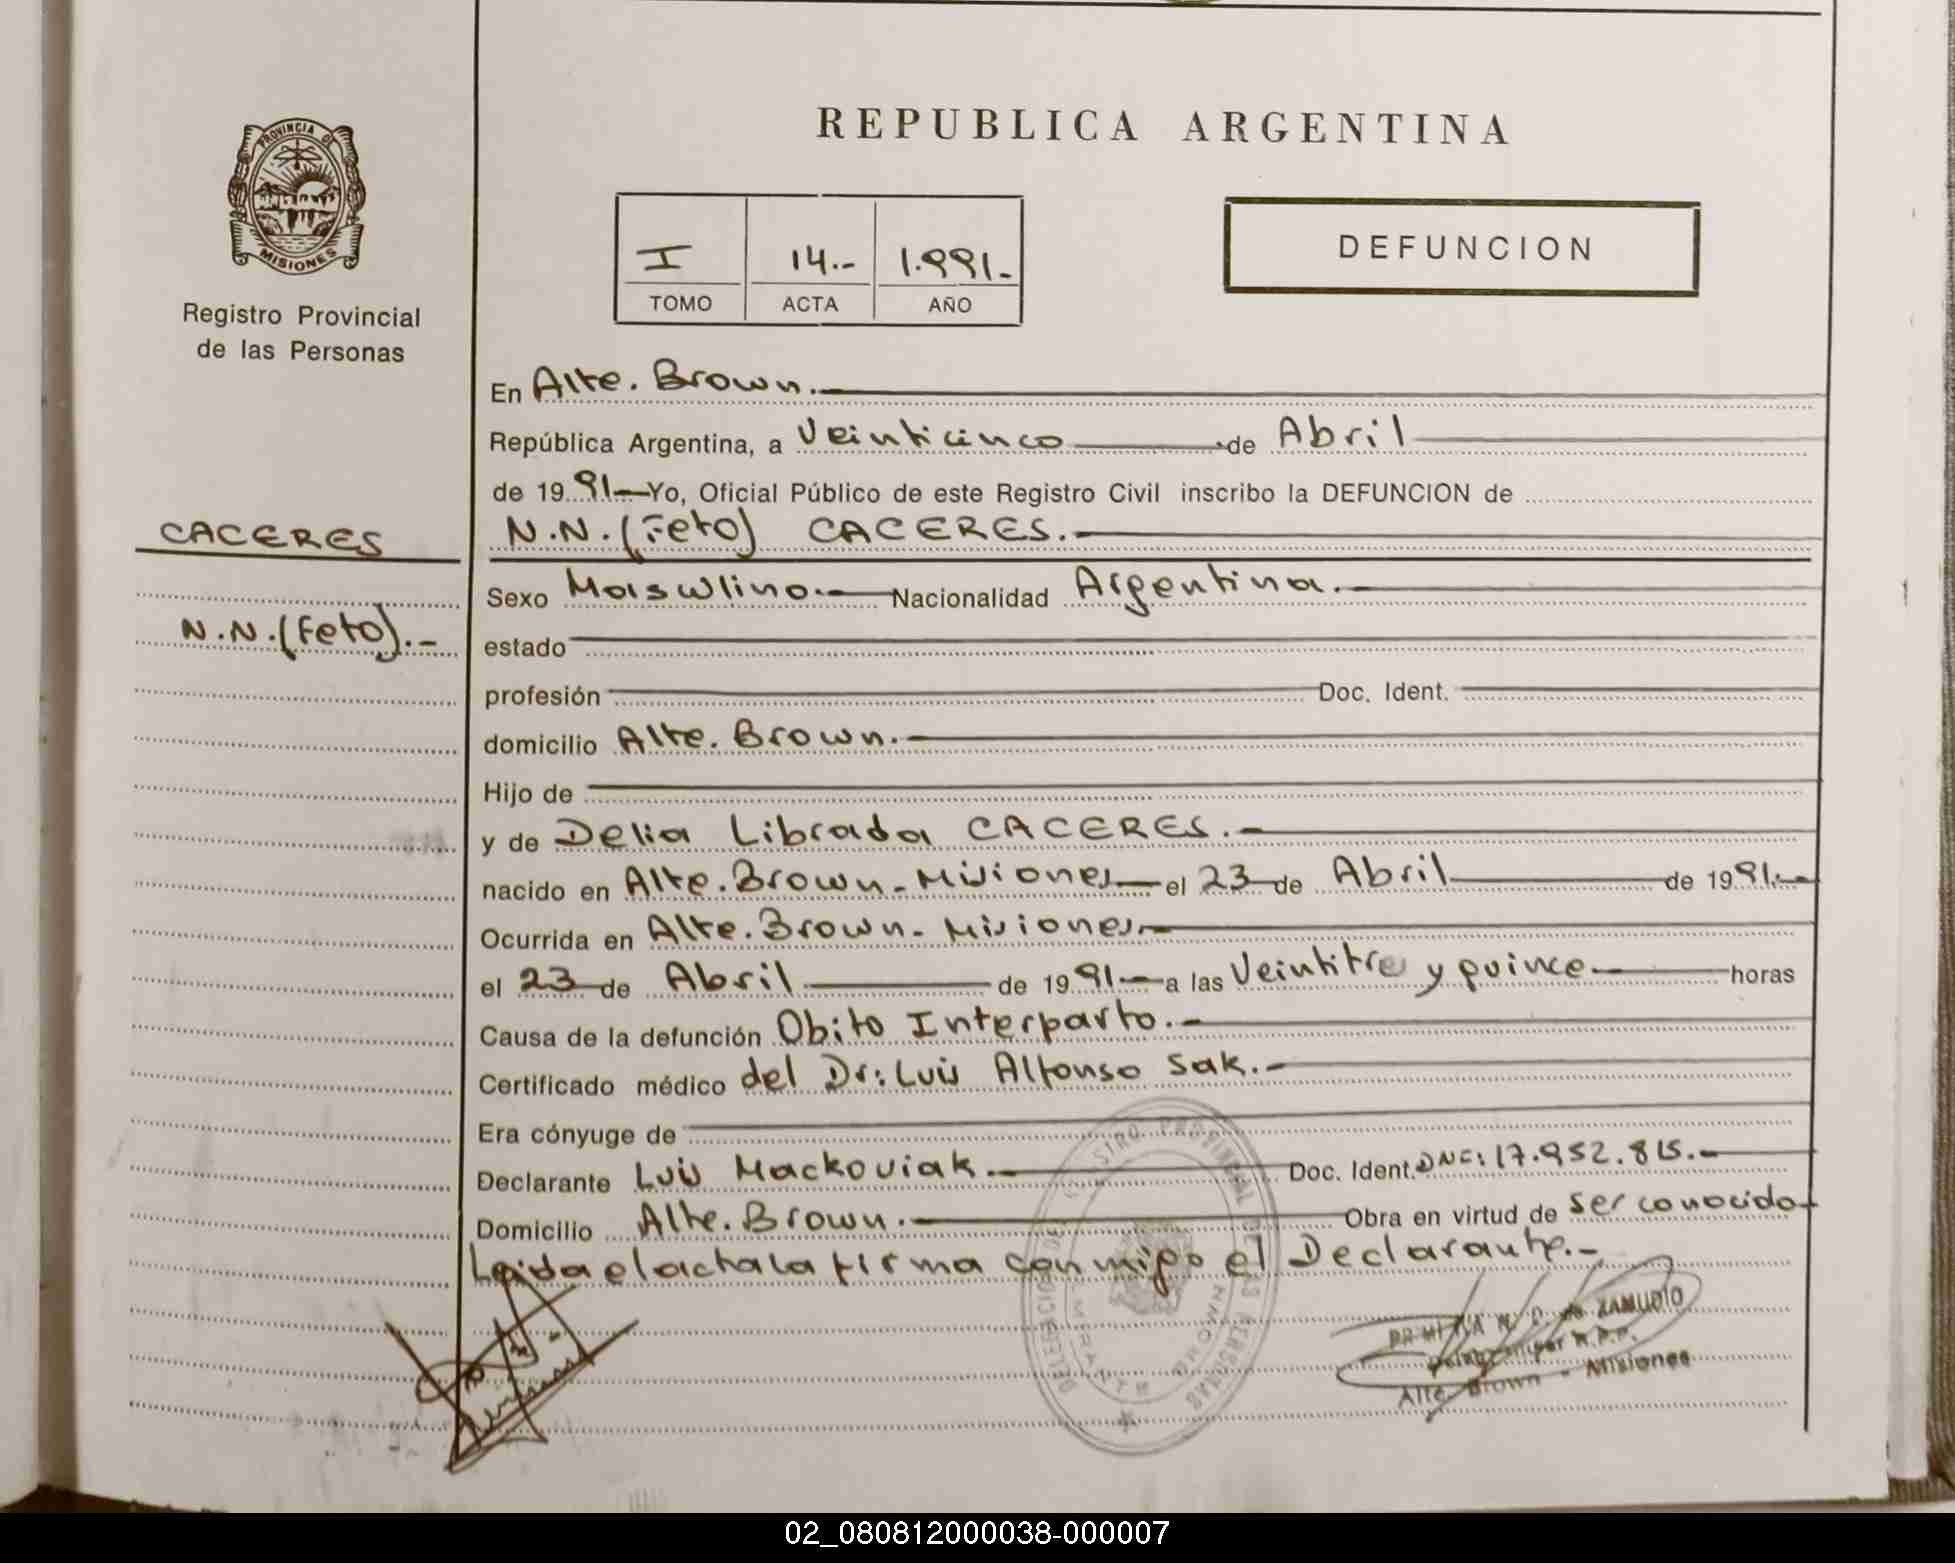 REPUBLICA ARGENTINA
PROVINCIA DE
MISIONES
Registro Provincial
de las Personas
I 14.- 1.991.-
TOMO ACTA AÑO
DEFUNCION
En Alte. Brown.-
República Argentina, a Veinticinco de Abril
de 19 91 Yo, Oficial Público de este Registro Civil inscribo la DEFUNCION de
CACERES
N.N. (Feto) CACERES.-
Sexo Masculino.- Nacionalidad Argentina.-
N.N.(Feto).-
estado
profesión Doc. Ident.
domicilio Alte. Brown.-
Hijo de
y de Delia Librada CACERES.-
nacido en Alte. Brown - Misiones el 23 de Abril de 19 91.-
Ocurrida en Alte. Brown - Misiones.-
el 23 de Abril de 19 91.- a las Veintitre y quince horas
Causa de la defunción Obito Interparto.-
Certificado médico del Dr: Luis Alfonso Sak.-
Era cónyuge de
Declarante Luis Mackoviak.- Doc. Ident. DNI: 17.952.815.-
Domicilio Alte. Brown.- Obra en virtud de ser conocido
Leida el acta la firma conmigo el Declarante.-
REGISTRO PROVINCIAL DE LAS PERSONAS
de ZAMUDIO
Alte. Brown - Misiones
02_080812000038-000007